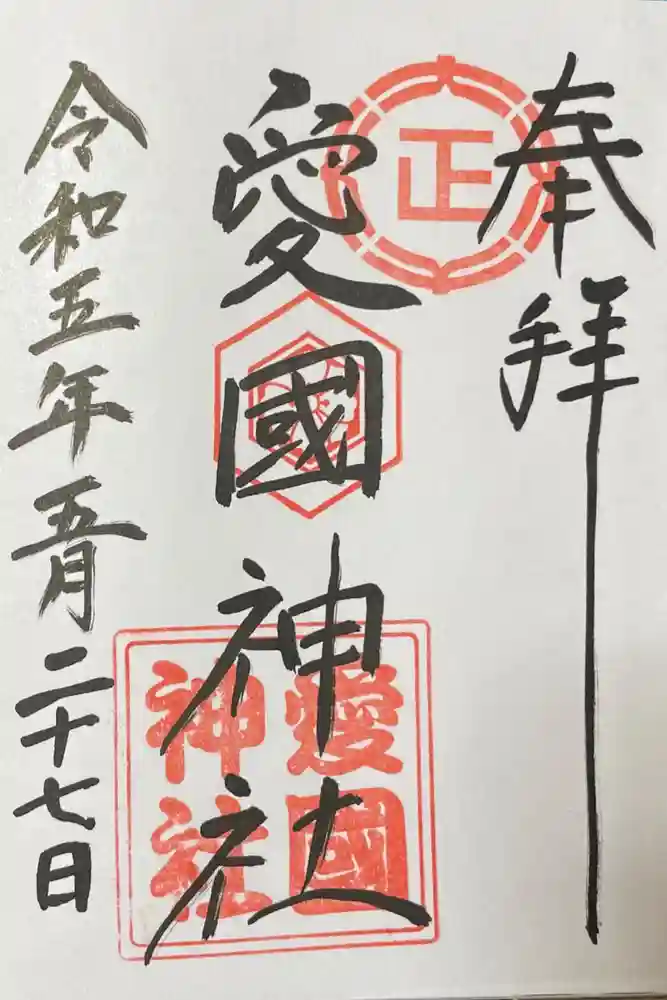 奉拝
正
愛國神社
愛國
神社
令和五年五月二十七日